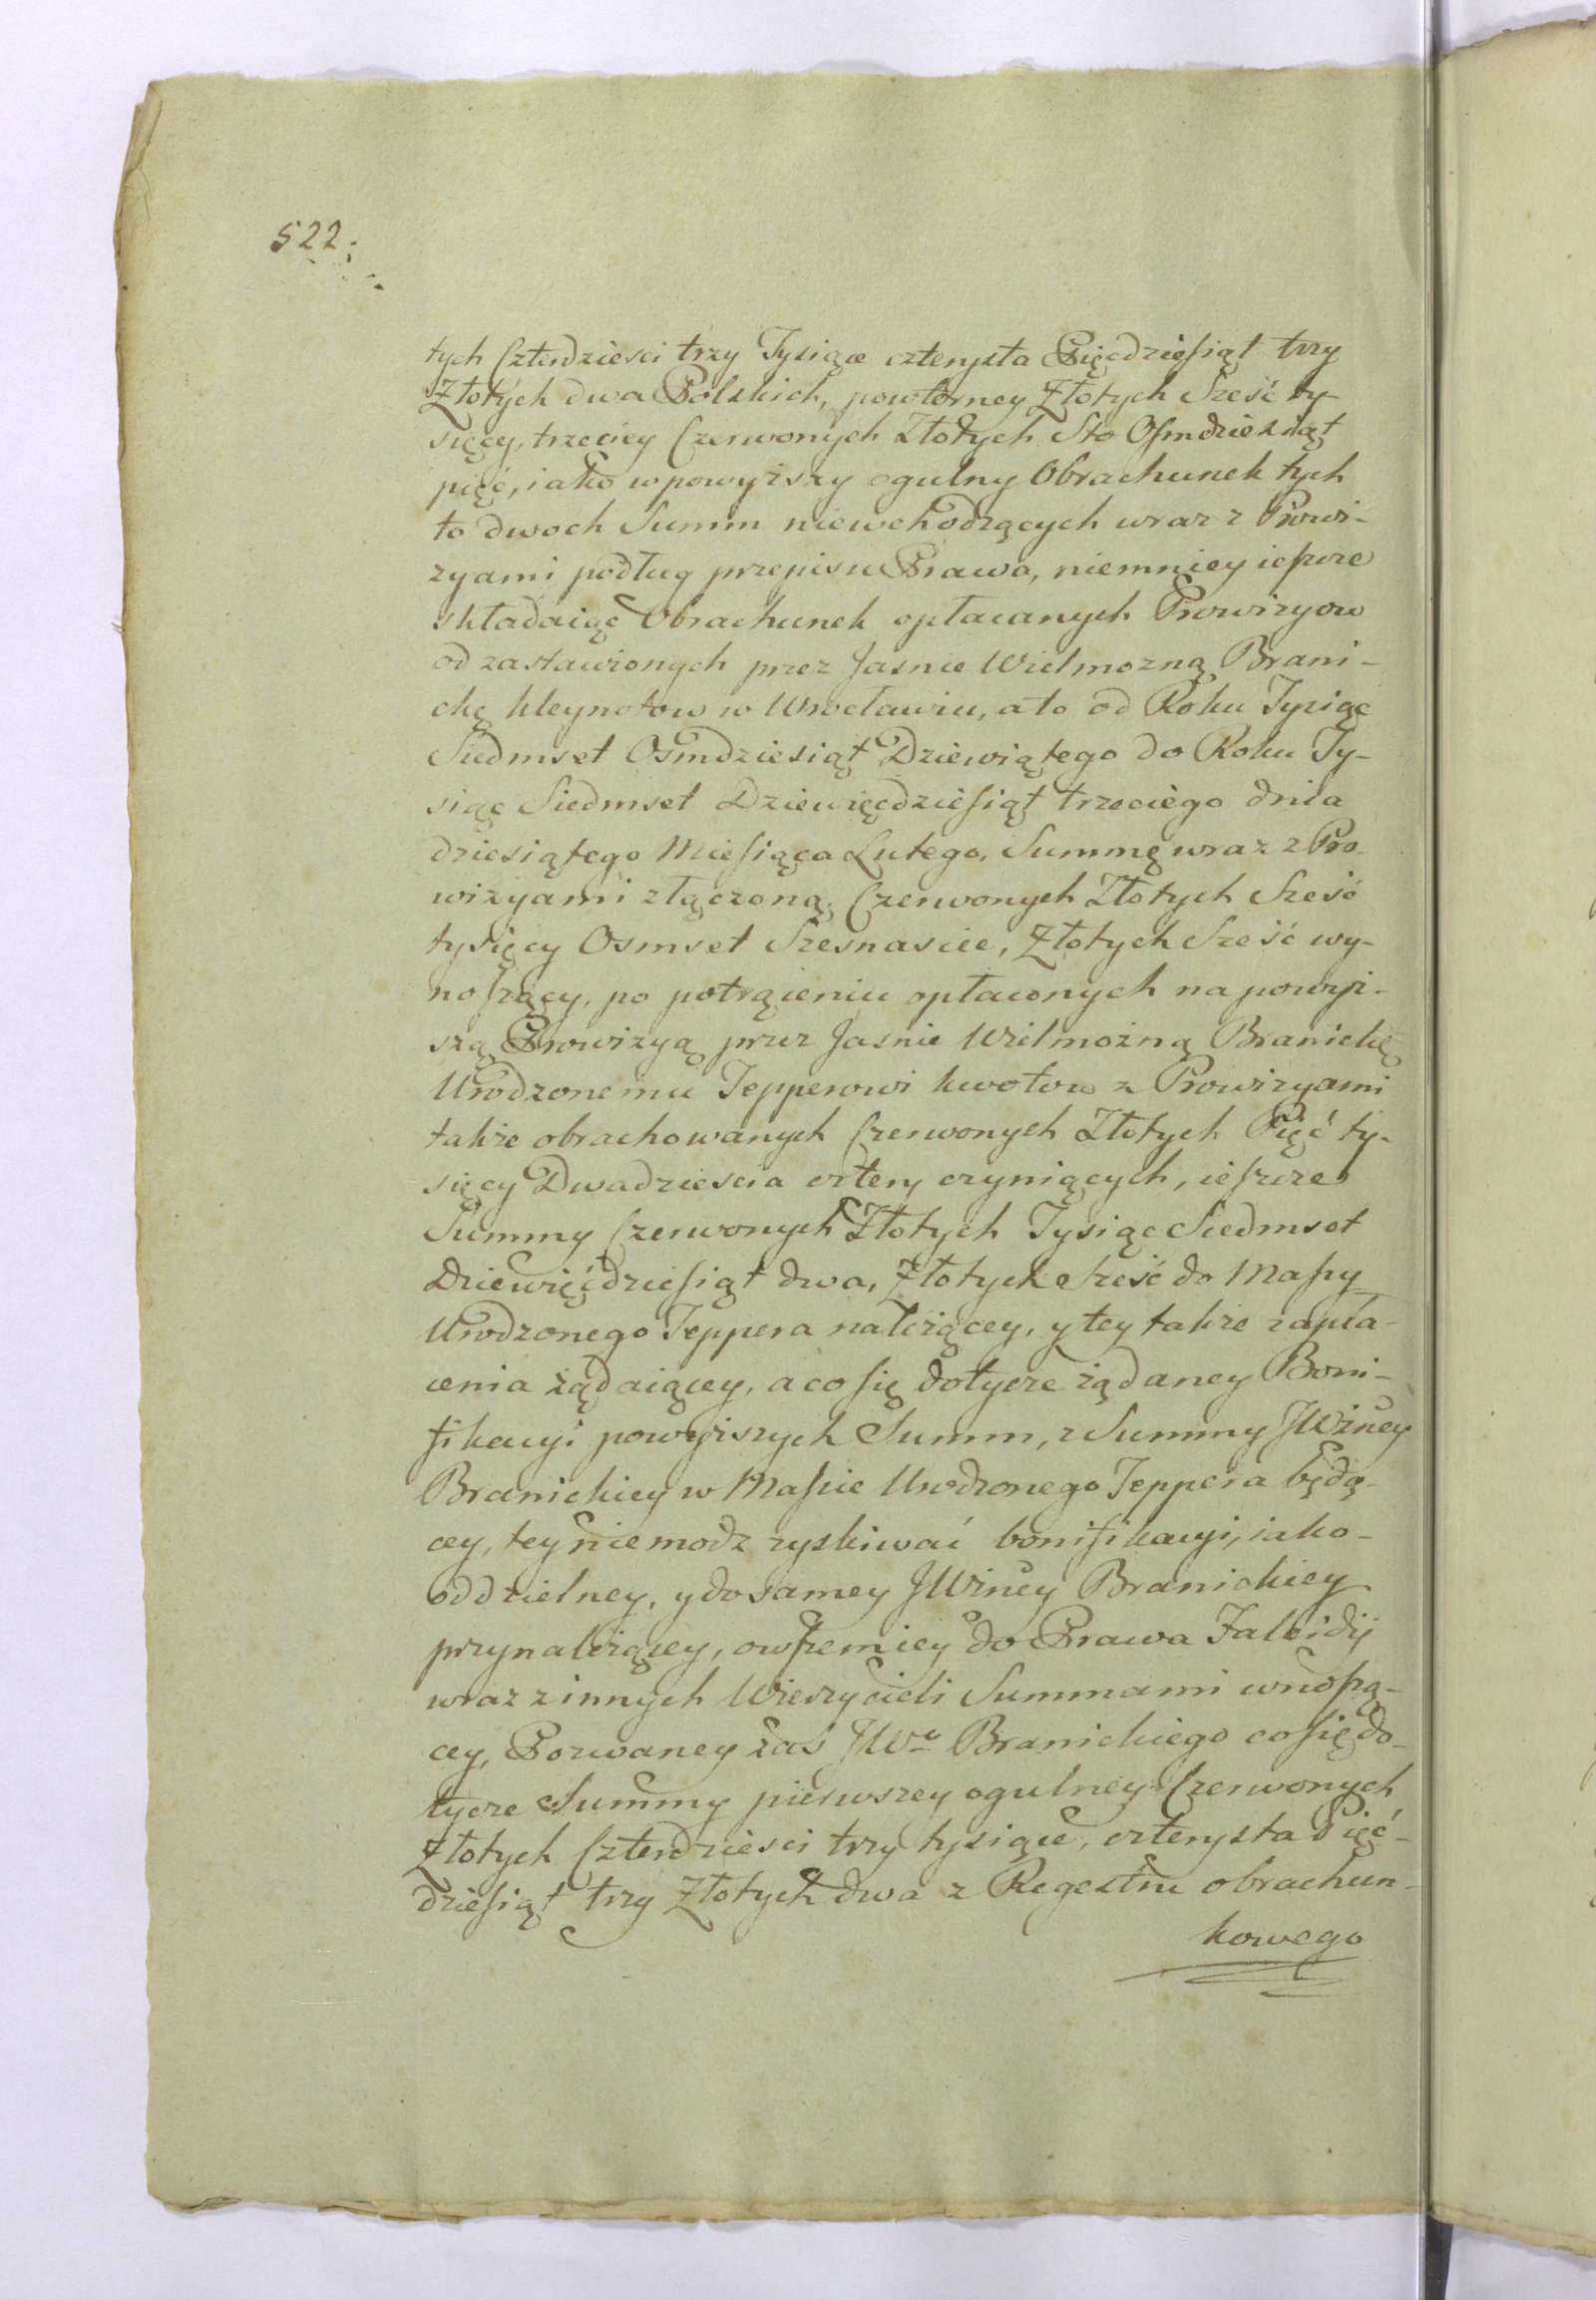 522.
tych Czterdziesci trzy Tysiące czterysta Pięcdziesiąt trzy
Złotych dwa Polskich, powtorney Złotych Sześć ty-
sięcy, trzeciey Czerwonych Złotych Sto Osmdziesiąt
pięć, iako w powyższy ogulny Obrachunek tych
to dwoch Summ niewchodzących wraz z Prowi-
zyami podług przepisu Prawa, niemniey ieszcze
składaiąc Obrachunek opłacanych Prowizyow
od zastawionych przez Jasnie Wielmozną Brani-
cką kleynotow w Wrocławiu, a to od Roku Tysiąc
Siedmset Osmdziesiąt Dziewiątego do Roku Ty-
siąc Siedmset Dziewięcdziesiąt trzeciego dnia
dziesiątego Miesiąca Lutego, Summę wraz z Pro-
wizyami złączoną Czerwonych Złotych Sześć
tysięcy Osmset Szesnascie, Złotych Sześć wy-
noszący, po potrąceniu opłaconych na powyż-
szą Prowizyą przez Jasnie Wielmożną Branicką
Urodzonemu Tepperowi kwotow z Prowizyami
także obrachowanych Czerwonych Złotych Pięć ty-
sięcy Dwadziescia cztery czyniących, ieszcze
Summy Czerwonych Złotych Tysiąc Siedmset
Dziewięćdziesiąt dwa, Złotych Sześć do Massy
Urodzonego Teppera należącey, y tey także zapła-
cenia żądaiącey, a co się dotycze żądaney Boni-
fikacyi powyższych Summ, z Summy JWżney
Branickiey w Massie Urodzonego Teppera będą-
cey, tey niemodz zyskiwać bonifikacyi, iako-
oddzielney, y do samey JWżney Branickiey
przynależącey, owszem iey do Prawa Falcidij
wraz z innych Wierzycieli Summami wnoszą-
cey, Pozwaney zaś JWo Branickiego co się do-
tycze Summy pierwszey ogulney Czerwonych
Złotych Czterdziesci trzy tysiące, czterysta Pięć-
dziesiąt trzy Złotych dwa z Regestru obrachun-
kowego